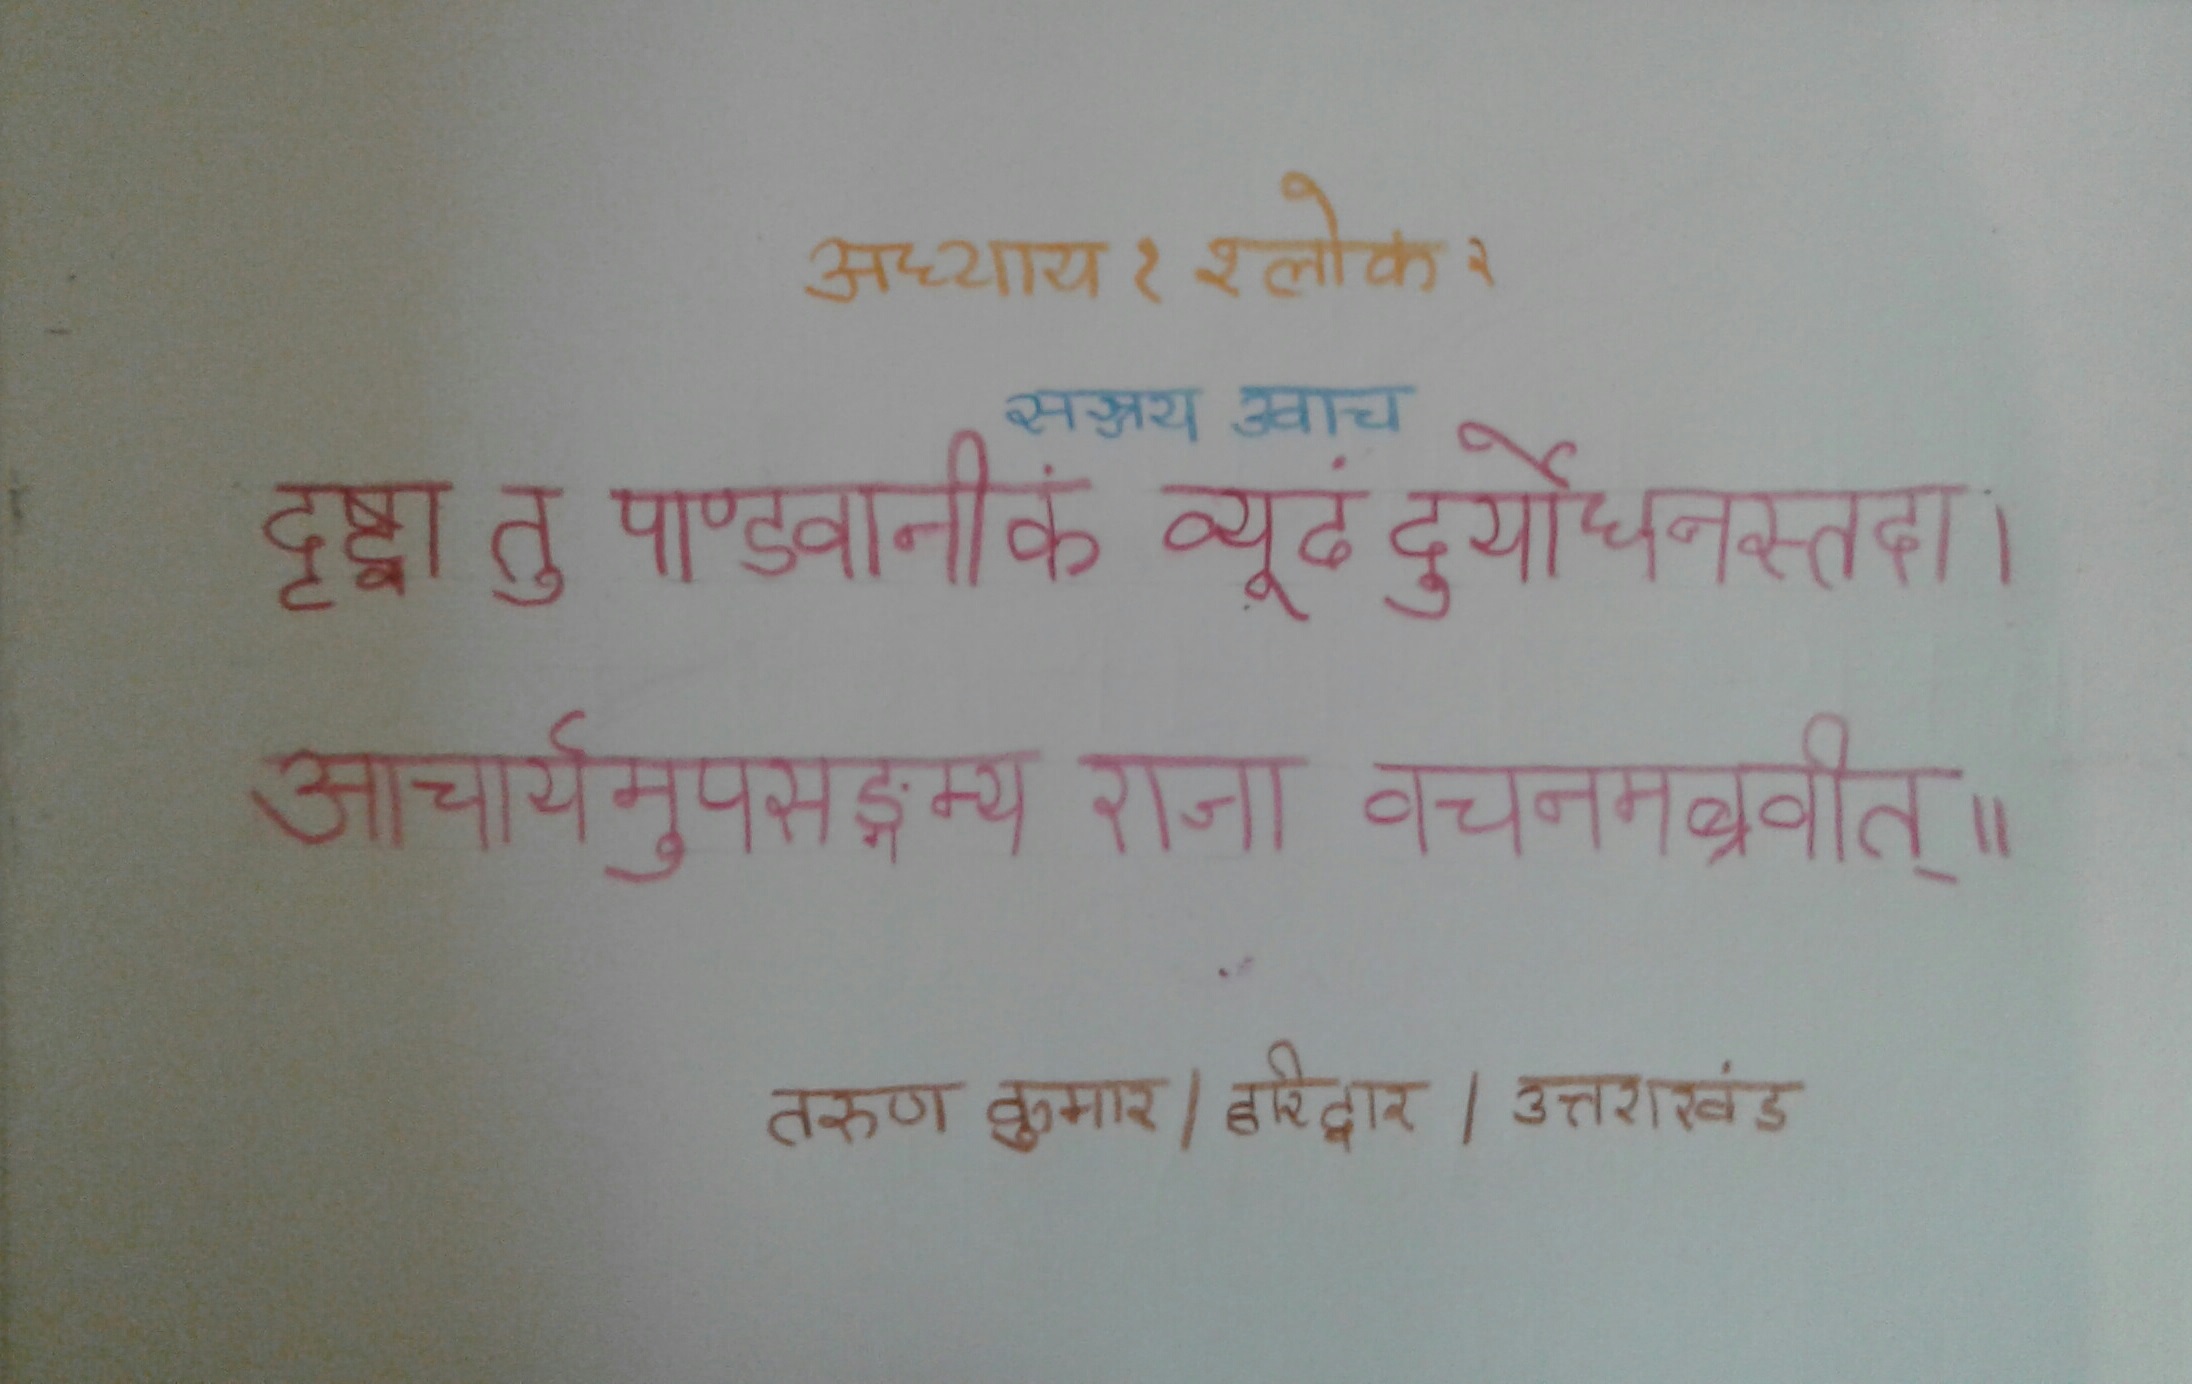 अध्याय १ श्लोक २
सञ्जय उवाच
दृष्ट्वा तु पाण्डवानीकं व्यूढं दुर्योधनस्तदा।
आचार्यमुपसङ्गम्य राजा वचनमब्रवीत्॥
तरुण कुमार/हरिद्वार/उत्तराखंड